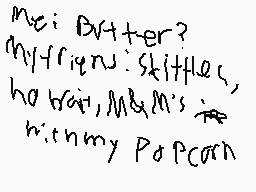 me: Butter?
my friend: Skittles,
no wait, M&M's
with my Popcorn